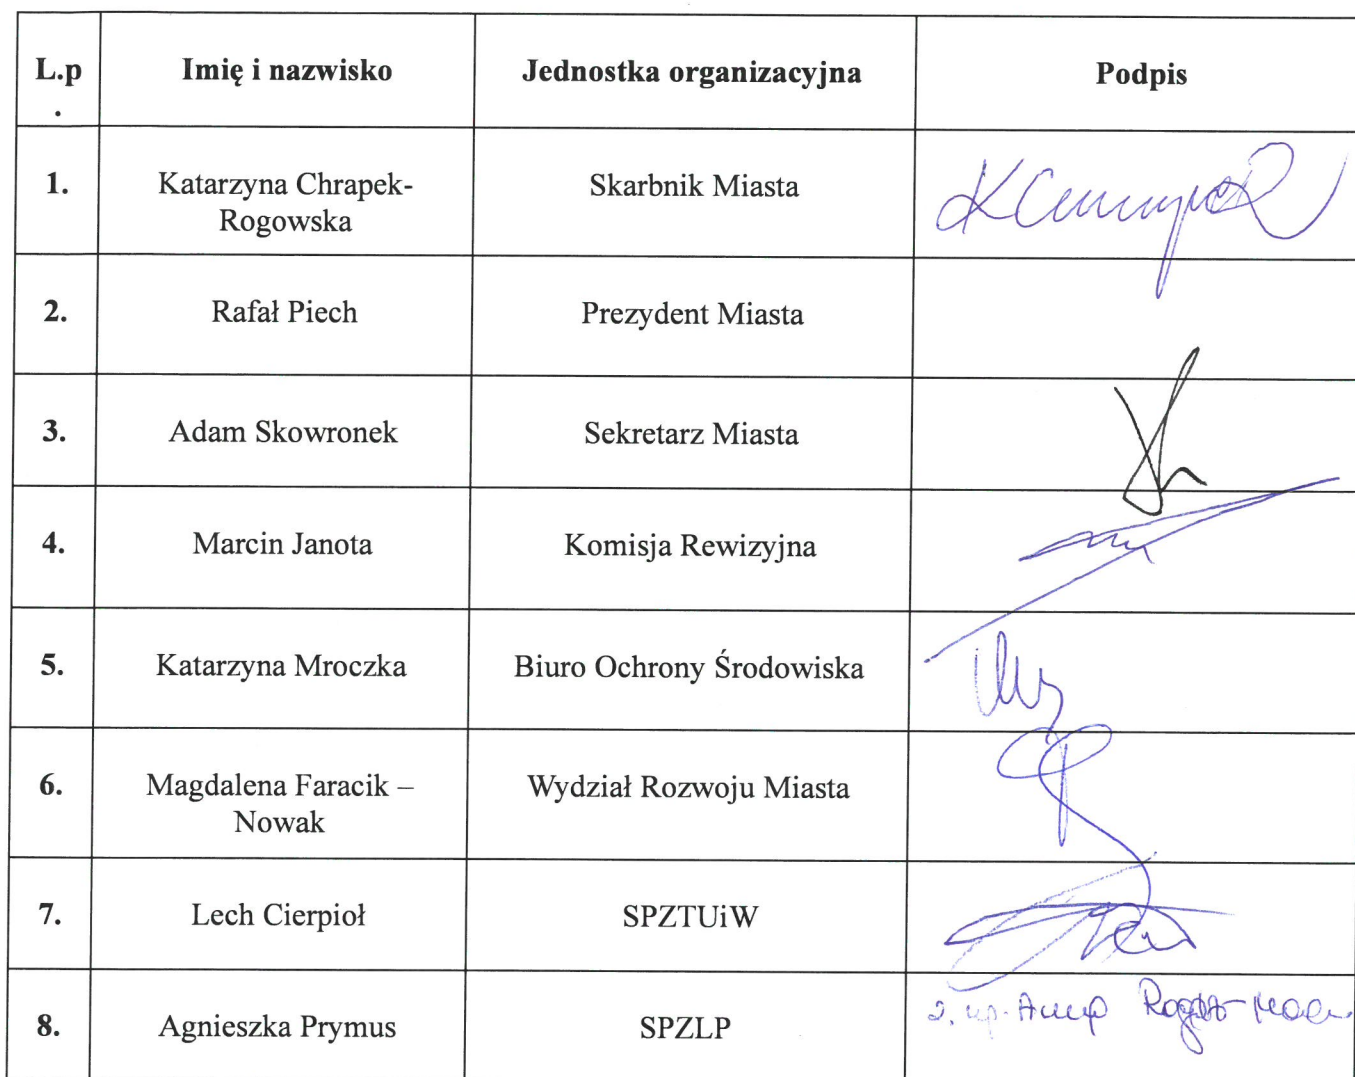 L.p
.
Imię i nazwisko
Jednostka organizacyjna
Podpis
1.
Katarzyna Chrapek-
Rogowska
Skarbnik Miasta
2.
Rafał Piech
Prezydent Miasta
3.
Adam Skowronek
Sekretarz Miasta
4.
Marcin Janota
Komisja Rewizyjna
5.
Katarzyna Mroczka
Biuro Ochrony Środowiska
6.
Magdalena Faracik –
Nowak
Wydział Rozwoju Miasta
7.
Lech Cierpioł
SPZTUiW
8.
Agnieszka Prymus
SPZLP